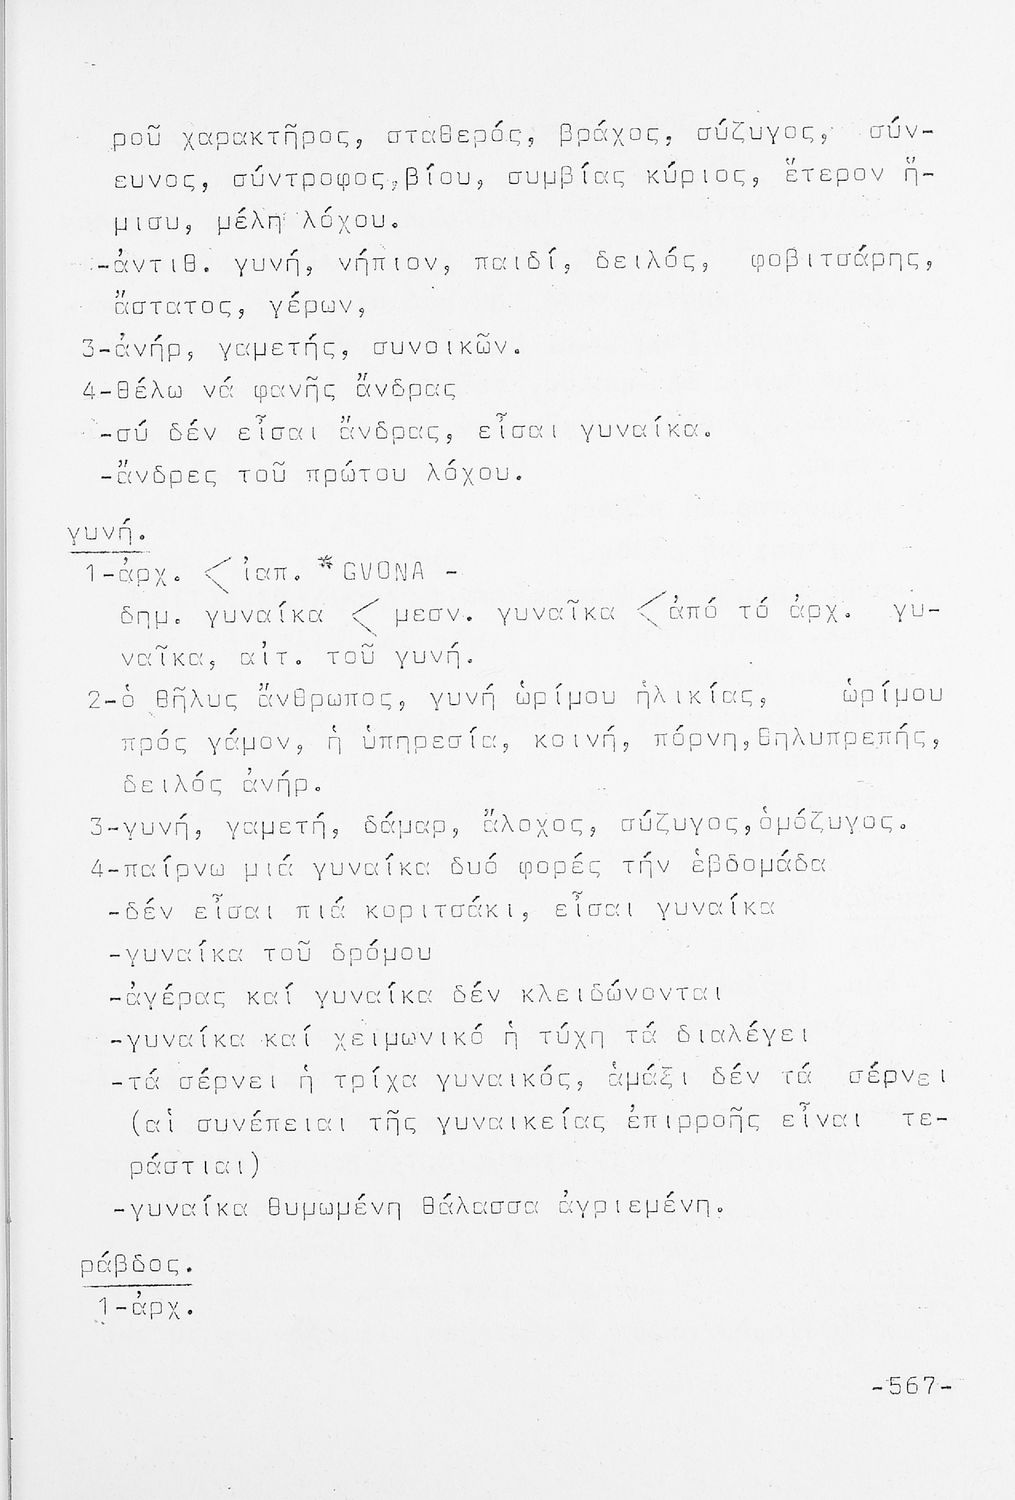 ροῦ χαρακτῆρος, σταθερός, βράχος, σύζυγος, σύν-
ευνος, σύντροφος,βίου, συμβίας κύριος, ἕτερον ἥ-
μισυ, μέλη λόχου.
-ἀντιθ. γυνή, νήπιον, παιδί, δειλός, φοβιτσάρης,
ἄστατος, γέρων,
3-ἀνήρ, γαμετής, συνοικῶν.
4-θέλω νά φανῆς ἄνδρας
-σύ δέν εἶσαι ἄνδρας, εἶσαι γυναίκα.
-ἄνδρες τοῦ πρώτου λόχου.
γυνή.
1-ἀρχ. < ἰαπ. *GVONA -
δημ. γυναίκα < μεσν. γυναῖκα <ἀπό τό ἀρχ. γυ-
ναῖκα, αἰτ. τοῦ γυνή.
2-ὁ θῆλυς ἄνθρωπος, γυνή ὡρίμου ἡλικίας, ὡρίμου
πρός γάμον, ἡ ὑπηρεσία, κοινή, πόρνη,θηλυπρεπής,
δειλός ἀνήρ.
3-γυνή, γαμετή, δάμαρ, ἄλοχος, σύζυγος,ὁμόζυγος.
4-παίρνω μιά γυναίκα δυό φορές τήν ἑβδομάδα
-δέν εἶσαι πιά κοριτσάκι, εἶσαι γυναίκα
-γυναίκα τοῦ δρόμου
-ἀγέρας καί γυναίκα δέν κλειδώνονται
-γυναίκα καί χειμωνικό ἡ τύχη τά διαλέγει
-τά σέρνει ἡ τρίχα γυναικός, ἁμάξι δέν τά σέρνει
(αἱ συνέπειαι τῆς γυναικείας ἐπιρροῆς εἶναι τε-
ράστιαι)
-γυναίκα θυμωμένη θάλασσα ἀγριεμένη.
ράβδος.
1-ἀρχ.
-567-